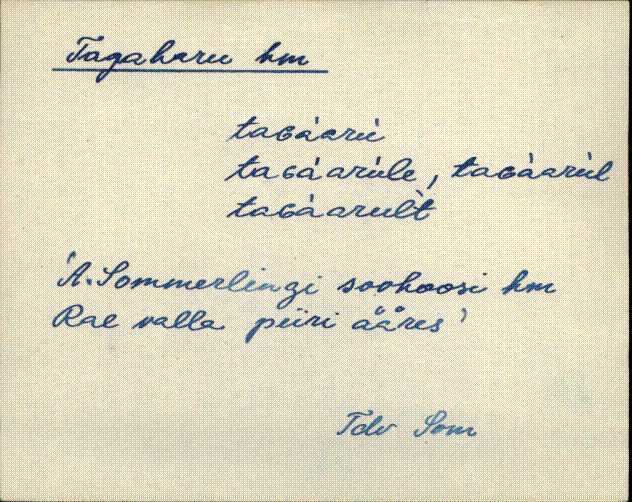 Tagaharu hm
taɢáarù
taɢáarùle, taɢàarùl
taɢàarult̀
'A. Sommerlingi soohoosi hm
Rae valla piiri ääres'
Tdv Som